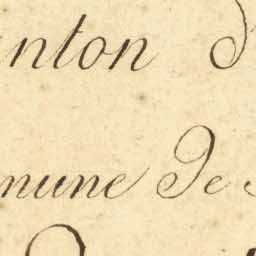 nton d
mune de